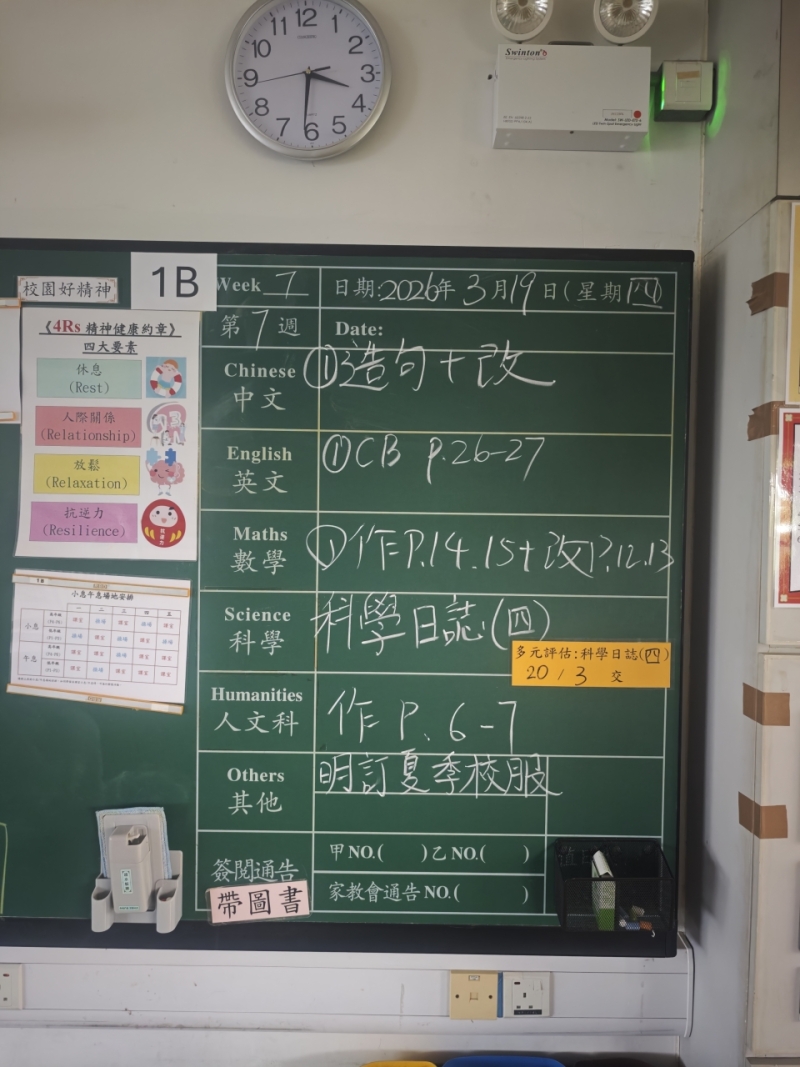 12
1
2
3
4
5
6
7
8
9
10
11
Swinton
校園好精神
1B
《4Rs 精神健康約章》
四大要素
休息
(Rest)
人際關係
(Relationship)
放鬆
(Relaxation)
抗逆力
(Resilience)
1B
小息午息場地安排
一 二 三 四 五
小息
午息
Week 7
日期:2026年3月19日(星期四)
第7週
Date:
Chinese
中文
①造句+改
English
英文
①CB p.26-27
Maths
數學
①作P.14.15+改P.12.13
Science
科學
科學日誌(四)
多元評估:科學日誌(四)
20/3 交
Humanities
人文科
作 P. 6-7
Others
其他
明訂夏季校服
簽閱通告
甲NO.( )乙NO.( )
家教會通告NO.( )
帶圖書